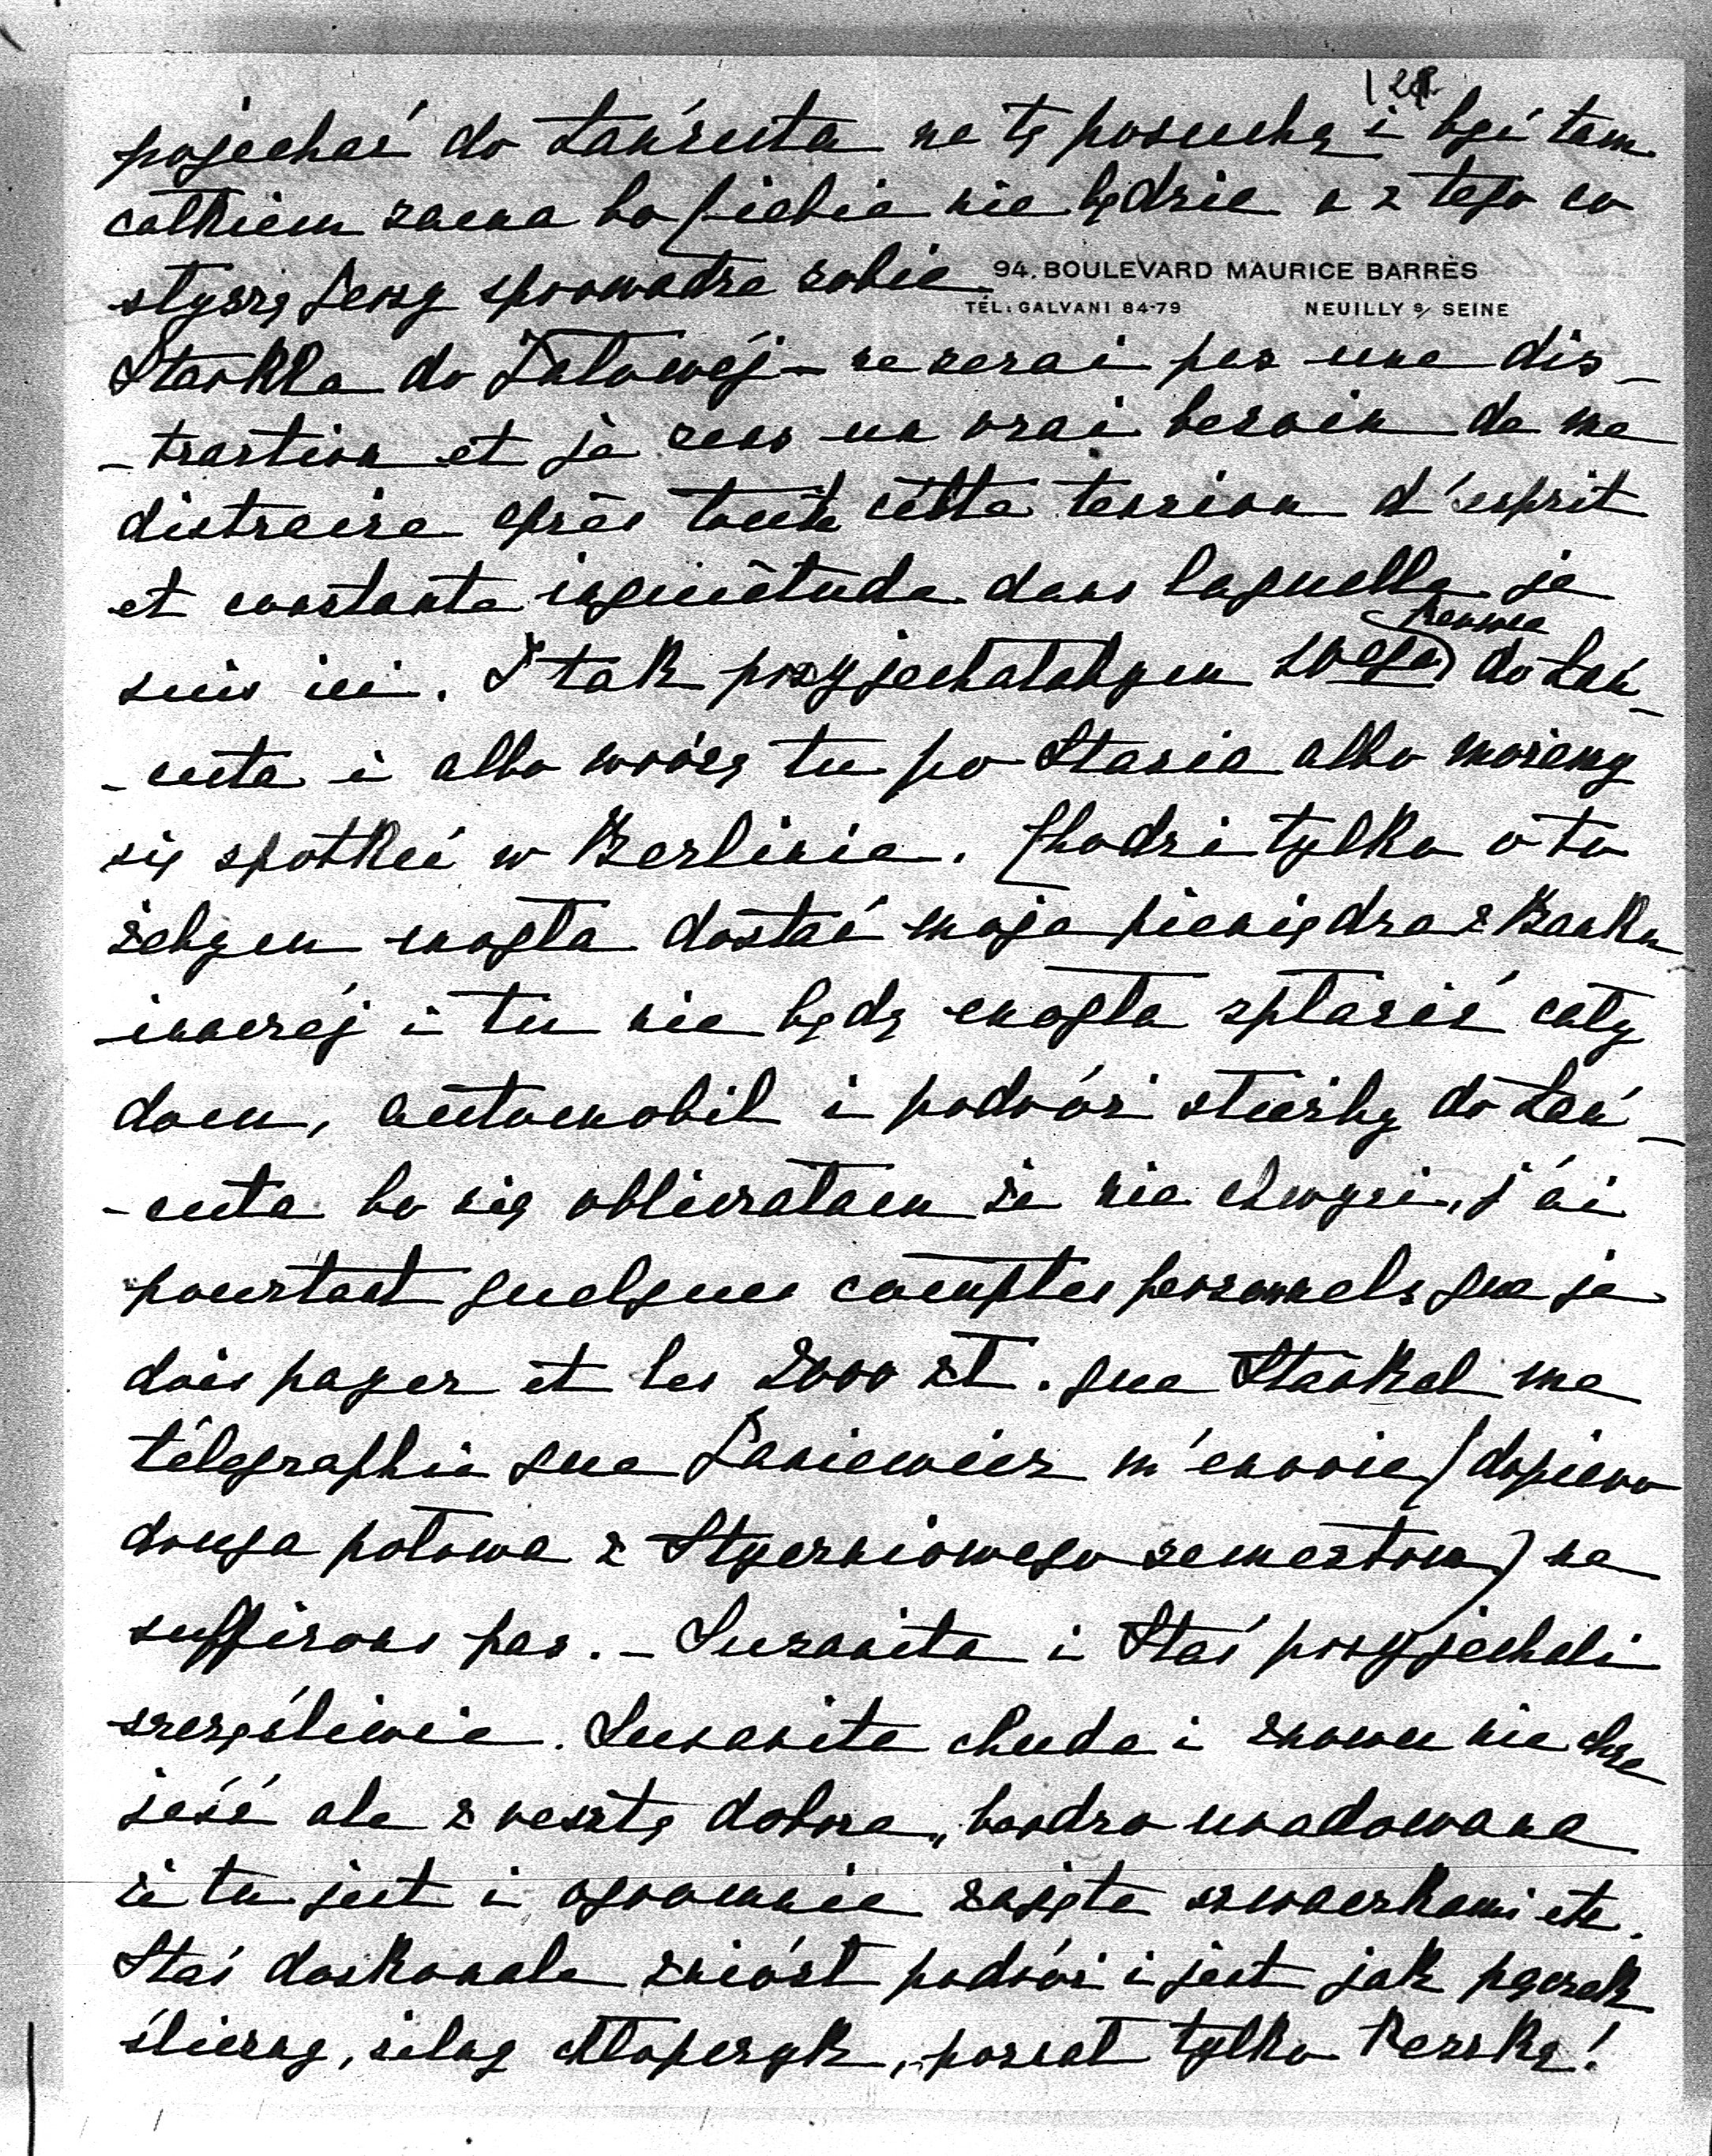 128
pojechać do Łańcuta na tę posuchę i być tam
całkiem sama bo Ciebie nie będzie a z tego co
słyszę Jerzy sprowadza sobie
94. BOULEVARD MAURICE BARRÈS
TÉL: GALVANI 84-79 NEUILLY S/ SEINE
Starkla do Julowéj – ne serai pas une dis-
-traction et je sens un vrai besoin de me
distraire après toute cette tension d'esprit
et constante inquiétude dans laquelle je
suis ici. I tak przyjechałabym 20ego do Łań-
-cuta i albo wrócę tu po Stasia albo możemy
się spotkać w Berlinie. Chodzi tylko o to
żebym mogła dostać moje pieniądze z Banku
inaczéj i tu nie będę mogła spłacić cały
dom, automobil i podróż służby do Łań-
-cuta bo się obliczałam że nie chwyci, j'ai
pourtant quelques comptes personnels que je
dois payer et les 2000 zł. que Starkel me
télégraphie que Janiewicz m'envoie (dopiero
druga połowa z Styczniowego semestru) ne
suffirons pas. – Suzanita i Staś przyjechali
szczęśliwie. Suzanita chuda i znowu nie chce
jeść ale z resztą dobrze, bardzo uradowana
że tu jest i ogromnie zajęta szmaczkami etc.
Staś doskonale zniósł podróż i jest jak pączek
śliczny, silny chłopczyk, porsał tylko troszkę!